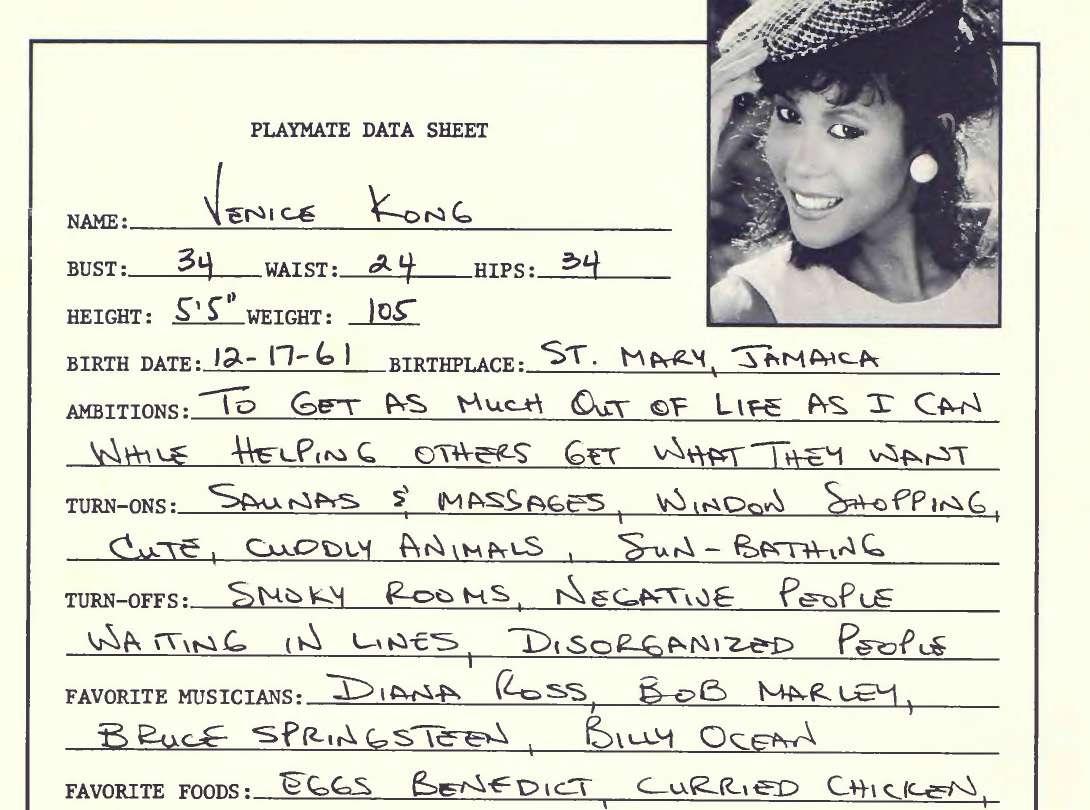 PLAYMATE DATA SHEET
NAME: VENICE KONG
BUST: 34 WAIST: 24 HIPS: 34
HEIGHT: 5'5" WEIGHT: 105
BIRTH DATE: 12-17-61 BIRTHPLACE: ST. MARY, JAMAICA
AMBITIONS: TO GET AS MUCH OUT OF LIFE AS I CAN
WHILE HELPING OTHERS GET WHAT THEY WANT
TURN-ONS: SAUNAS & MASSAGES, WINDOW SHOPPING,
CUTE, CUDDLY ANIMALS, SUN-BATHING
TURN-OFFS: SMOKY ROOMS, NEGATIVE PEOPLE
WAITING IN LINES, DISORGANIZED PEOPLE
FAVORITE MUSICIANS: DIANA ROSS, BOB MARLEY,
BRUCE SPRINGSTEEN, BILLY OCEAN
FAVORITE FOODS: EGGS BENEDICT, CURRIED CHICKEN,